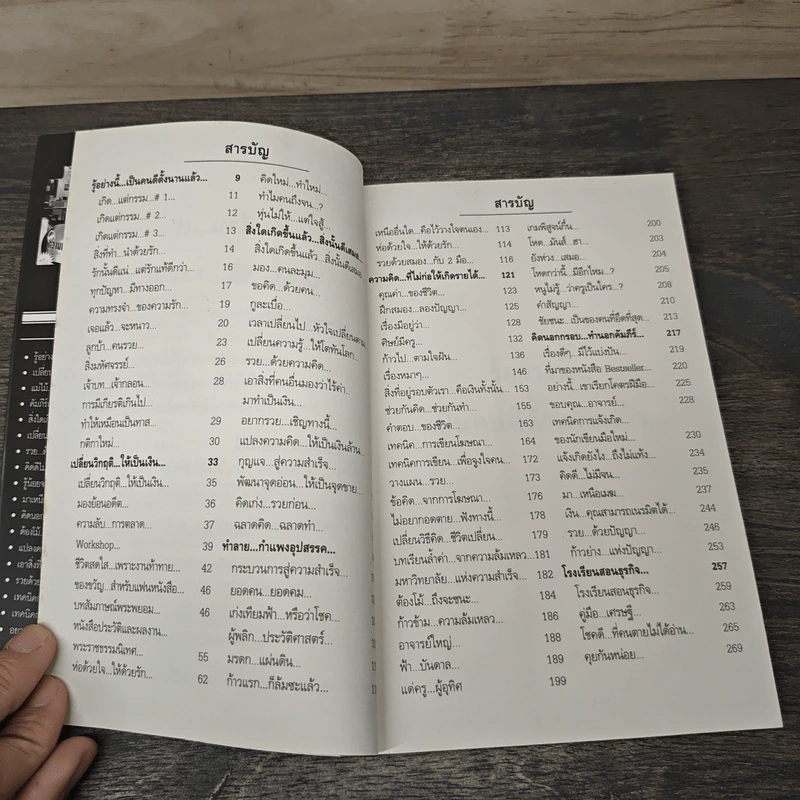 สารบัญ
รู้อย่างนี้...เป็นคนดีตั้งนานแล้ว... 9
เกิด...แต่กรรม...# 1... 11
เกิดแต่กรรม...# 2... 12
เกิดแต่กรรม...# 3... 13
สิ่งที่ทำ...นำด้วยรัก 14
รักนั้นดีแน่...แต่รักแท้ดีกว่า... 16
ทุกปัญหา...มีทางออก... 17
ความทรงจำ...ของความรัก... 19
เจอแล้ว...จะหนาว... 20
ลูกบ้า...คนรวย... 23
สิ่งมหัศจรรย์... 26
เจ้าบท...เจ้ากลอน... 28
การมีเกียรติเกินไป...
ทำให้เหมือนเป็นทาส... 29
กติกาใหม่... 30
เปลี่ยนวิกฤติ...ให้เป็นเงิน... 33
เปลี่ยนวิกฤติ...ให้เป็นเงิน... 35
มองย้อนอดีต... 36
ความลับ...การตลาด... 37
Workshop... 39
ชีวิตสดใส...เพราะงานท้าทาย... 42
ของขวัญ...สำหรับแฟนหนังสือ... 46
บทสัมภาษณ์พระพยอม... 46
หนังสือประวัติและผลงาน...
พระราชธรรมนิเทศ... 55
ห่อด้วยใจ...ให้ด้วยรัก... 62
คิดใหม่...ทำใหม่...
ทำไมคนถึงจน...?
หุ่นไม่ให้...แต่ใจสู้...
สิ่งใดเกิดขึ้นแล้ว...สิ่งนั้นดีเสมอ...
สิ่งใดเกิดขึ้นแล้ว...สิ่งนั้นดีเสมอ
มอง...คนละมุม...
ขอคิด...ด้วยคน...
กูละเบื่อ...
เวลาเปลี่ยนไป...หัวใจเปลี่ยนตาม
เปลี่ยนความรู้...ให้โตทันโลก...
รวย...ด้วยความคิด...
เอาสิ่งที่คนอื่นมองว่าไร้ค่า...
มาทำเป็นเงิน...
อยากรวย...เชิญทางนี้...
แปลงความคิด...ให้เป็นเงินล้าน...
กุญแจ...สู่ความสำเร็จ...
พัฒนาจุดอ่อน...ให้เป็นจุดขาย...
คิดเก่ง...รวยก่อน...
ฉลาดคิด...ฉลาดทำ...
ทำลาย...กำแพงอุปสรรค...
กระบวนการสู่ความสำเร็จ...
ยอดคน...ยอดคม...
เก่งเทียมฟ้า...หรือว่าโชค...
ผู้พลิก...ประวัติศาสตร์...
มรดก...แผ่นดิน...
ก้าวแรก...ก็ล้มซะแล้ว...
สารบัญ
เหนือยื่นใด...คือไว้วางใจตนเอง... 113
ห่อด้วยใจ...ให้ด้วยรัก... 114
รวยด้วยสมอง...กับ 2 มือ... 116
ความคิด...ที่ไม่ก่อให้เกิดรายได้... 121
คุณค่า...ของชีวิต... 123
ฝึกสมอง...ลองปัญญา... 125
เรื่องมีอยู่ว่า... 128
ศิษย์มีครู... 132
ก้าวไป...ตามใจฝัน... 136
เรื่องหมาๆ... 146
สิ่งที่อยู่รอบตัวเรา...คือเงินทั้งนั้น... 153
ช่วยกันคิด...ช่วยกันทำ... 155
คำตอบ...ของชีวิต... 163
เทคนิค...การเขียนโฆษณา... 164
เทคนิคการเขียน...เพื่อจูงใจคน... 172
วางแผน...รวย... 174
ข้อคิด...จากการโฆษณา... 176
ไม่อยากอดตาย...ฟังทางนี้... 178
เปลี่ยนวิธีคิด...ชีวิตเปลี่ยน... 179
บทเรียนล้ำค่า...จากความล้มเหลว... 181
มหาวิทยาลัย...แห่งความสำเร็จ... 182
ต้องโม้...ถึงจะชนะ... 184
ก้าวข้าม...ความล้มเหลว... 186
อาจารย์ใหญ่... 188
ฟ้า...บันดาล... 189
แด่ครู...ผู้อุทิศ 199
เกมพิสูจน์กึ๋น... 200
โหด...มันส์...ฮา... 203
ยังห่วง...เสมอ... 204
โหดกว่านี้...มีอีกไหม...? 205
หนูไม่รู้...ว่าครูเป็นใคร...? 208
คำสัญญา... 210
ชัยชนะ...เป็นของคนที่อึดที่สุด... 213
คิดนอกกรอบ...ทำนอกคัมภีร์... 217
เรื่องดีๆ...มีไว้แบ่งปัน... 219
ที่มาของหนังสือ Bestseller... 220
อย่างนี้...เขาเรียกโคตรฝีมือ... 225
ขอบคุณ...อาจารย์... 228
เทคนิคการแจ้งเกิด...
ของนักเขียนมือใหม่... 230
แจ้งเกิดยังไง...ถึงไม่แท้ง... 234
คิดดี...ไม่มีจน... 235
มา...เหนือเมฆ... 237
เงิน...คุณสามารถเนรมิตได้... 244
รวย...ด้วยปัญญา... 246
ก้าวย่าง...แห่งปัญญา... 253
โรงเรียนสอนธุรกิจ... 257
โรงเรียนสอนธุรกิจ... 259
คู่มือ...เศรษฐี... 263
โชคดี...ที่คนตายไม่ได้อ่าน... 265
คุยกันหน่อย... 269